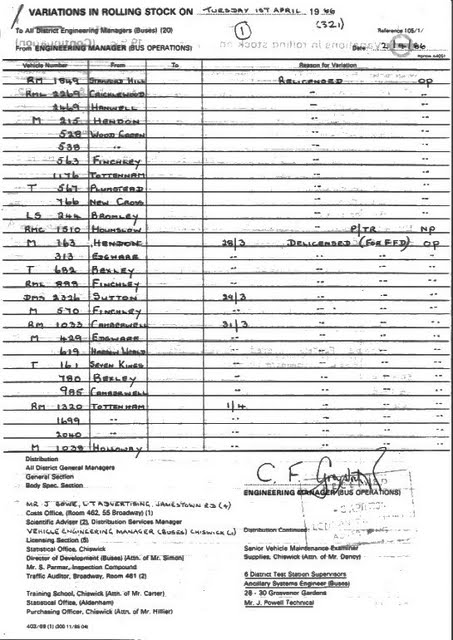 VARIATIONS IN ROLLING STOCK ON TUESDAY 1ST APRIL 19 86
(321)
To All District Engineering Managers (Buses) (20) 1 Reference 105/1/
From ENGINEERING MANAGER (BUS OPERATIONS) Date 2/4/86
Vehicle Number From To Reason for Variation
RM 1849 STAMFORD HILL RELICENSED OP
RML 2269 CRICKLEWOOD -- --
2469 HANWELL -- --
M 215 HENDON -- --
528 WOOD GREEN -- --
538 -- -- --
563 FINCHLEY -- --
1176 TOTTENHAM -- --
T 567 PLUMSTEAD -- --
766 NEW CROSS -- --
LS 244 BROMLEY -- --
RMC 1510 HOUNSLOW -- P/TR NP
M 163 HENDON 28/3 DELICENSED (FOR FFD) OP
313 EDGWARE -- -- -- --
T 682 BEXLEY -- -- -- --
RML 899 FINCHLEY -- -- -- --
DMS 2326 SUTTON 29/3 -- -- --
M 570 FINCHLEY -- -- -- --
RM 1033 CAMBERWELL 31/3 -- -- --
M 429 EDGWARE -- -- -- --
619 HARROW WEALD -- -- -- --
T 161 SEVEN KINGS -- -- -- --
780 BEXLEY -- -- -- --
985 CAMBERWELL -- -- -- --
RM 1320 TOTTENHAM 1/4 -- -- --
1699 -- -- -- -- --
2040 -- -- -- -- --
M 1038 HOLLOWAY -- -- -- --
Distribution
All District General Managers
General Section
Body Spec. Section
C. F.
ENGINEERING MANAGER (BUS OPERATIONS)
MR J BOWE, LT ADVERTISING, JAMESTOWN RD (4)
Costs Office, (Room 462, 55 Broadway) (1)
Scientific Adviser (2), Distribution Services Manager
VEHICLE ENGINEERING MANAGER (BUSES) CHISWICK (1)
Licensing Section (5)
Statistical Office, Chiswick
Director of Development (Buses) (Attn. of Mr. Simon)
Mr. S. Parmar, Inspection Compound
Traffic Auditor, Broadway, Room 461 (2)
Training School, Chiswick (Attn. of Mr. Carter)
Statistical Office, (Aldenham)
Purchasing Officer, Chiswick (Attn. of Mr. Hillier)
Distribution Continued:
Senior Vehicle Maintenance Examiner
Supplies, Chiswick (Attn. of Mr. Dancy)
6 District Test Station Supervisors
Ancillary Systems Engineer (Buses)
28 - 30 Grosvenor Gardens
Mr. J. Powell Technical